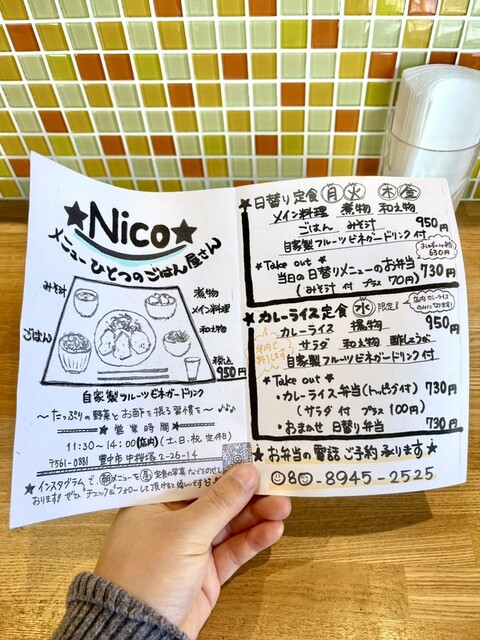 ★Nico★
メニューひとつのごはん屋さん
みそ汁
煮物
メイン料理
ごはん
和え物
税込
950円
自家製フルーツビネガードリンク
～たっぷりの野菜とお酢を摂る習慣を～♪♪♪
★ 営業時間 ★
11:30~14:00(店内)(土.日.祝 定休日)
〒561-0881 豊中市 中桜塚 2-26-14
★インスタグラムで、朝メニューを 昼 定食の写真 などのせて
おります! ぜひ チェック&フォローして頂けると嬉しいです
★日替り定食 月 火 木 金
メイン料理 煮物 和え物
ごはん みそ汁 950円
自家製フルーツビネガードリンク付
630円
*Take out*
当日の日替りメニューのお弁当 730円
(みそ汁 付 プラス 70円)
★カレーライス定食 水 限定!
店内カレーライス
のみになります!
カレーライス 揚物 950円
サラダ 和え物 酢しょうが
自家製フルーツビネガードリンク付
*Take out*
・カレーライス弁当(トッピング付) 730円
(サラダ付 プラス 100円)
・おまかせ 日替り弁当 730円
★お弁当の電話ご予約承ります★
080-8945-2525